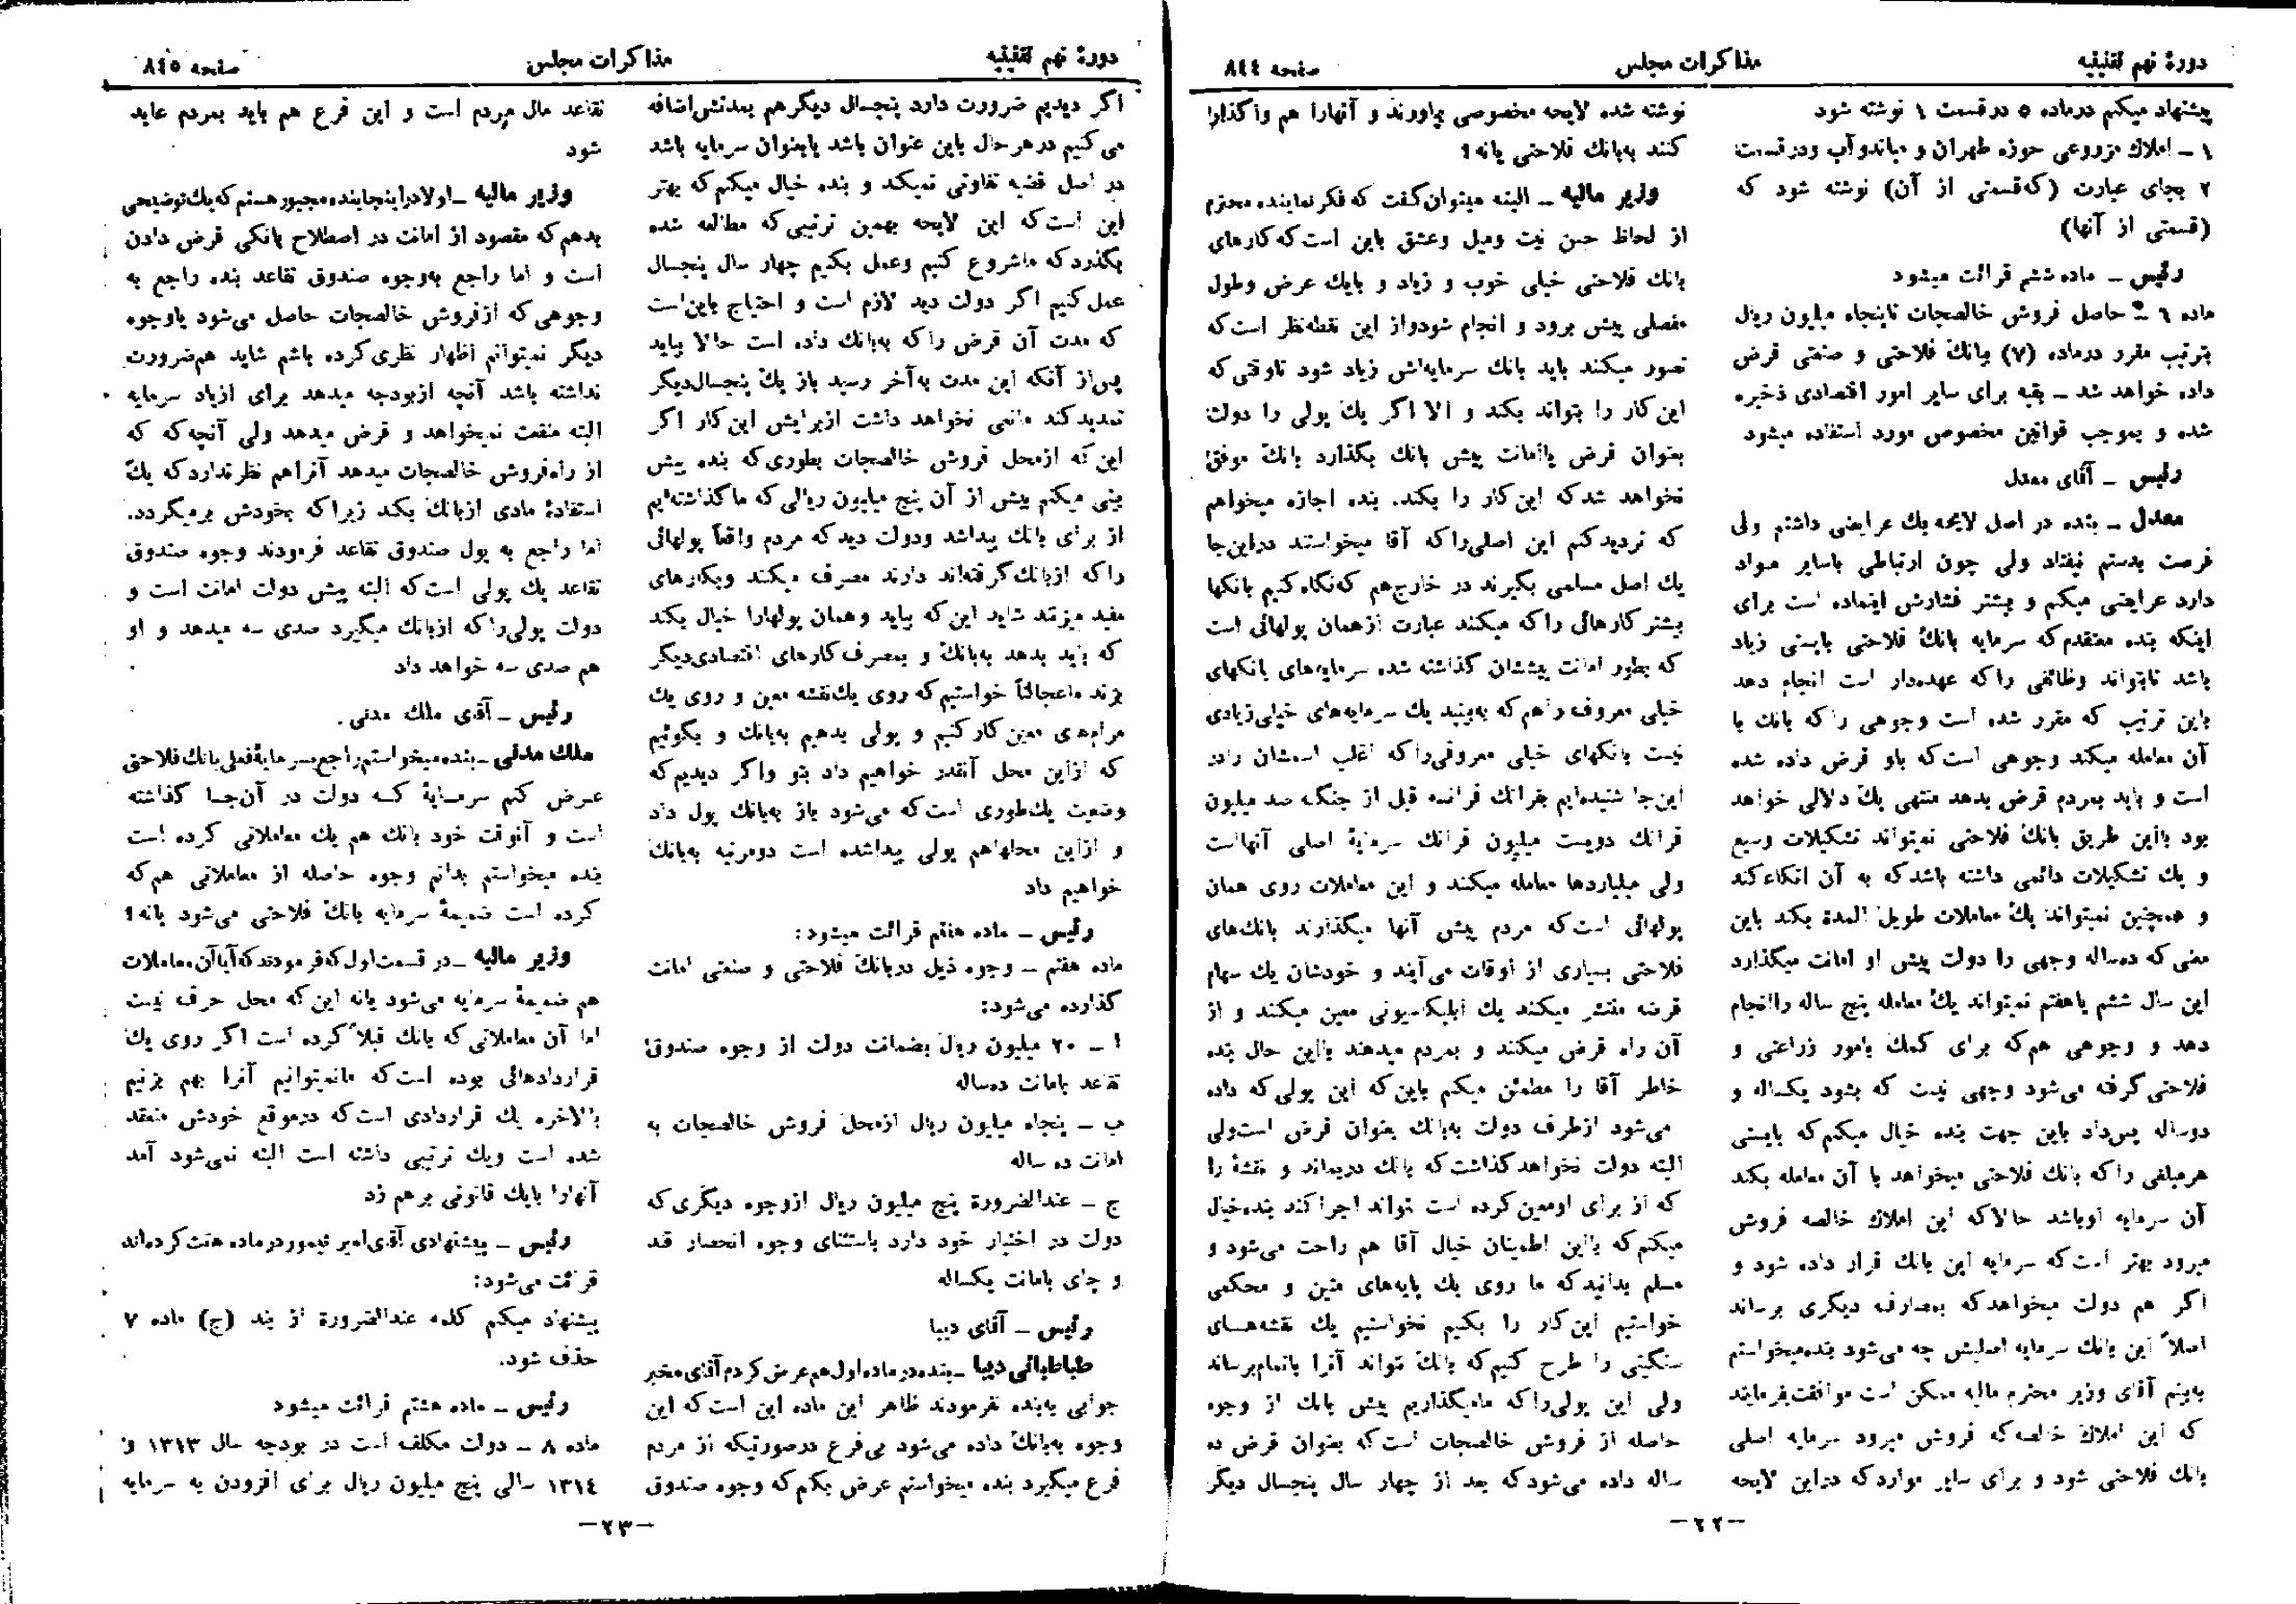 دورهٔ نهم تقنینیه
مذاکرات مجلس
صفحه ۸٤٤
پیشنهاد میکنم درماده ۵ در قسمت ۱ نوشته شود
۱ ــ املاك مزروعی حوزه طهران و میاندوآب ودرقسمت
۲ بجای عبارت (که قسمتی از آن) نوشته شود که
(قسمتی از آنها)
رئیس ــ ماده ششم قرائت میشود
ماده ٦ ــ حاصل فروش خالصجات تاپنجاه میلیون ریال
بترتیب مقرر درماده (۷) ببانك فلاحتی و صنعتی قرض
داده خواهد شد ــ بقیه برای سایر امور اقتصادی ذخیره
شده و بموجب قوانین مخصوص مورد استفاده میشود
رئیس ــ آقای معدل
معدل ــ بنده در اصل لایحه یك عرایضی داشتم ولی
فرصت بدستم نیفتاد ولی چون ارتباطی باسایر مواد
دارد عرایضی میکنم و بیشتر فشارش اینماده است برای
اینکه بنده معتقدم که سرمایه بانك فلاحتی بایستی زیاد
باشد تابتواند وظائفی را که عهده‌دار است انجام دهد
باین ترتیب که مقرر شده است وجوهی را که بانك با
آن معامله میکند وجوهی است که باو قرض داده شده
است و باید بمردم قرض بدهد منتهی یك دلالی خواهد
بود بااین طریق بانك فلاحتی نمیتواند تشکیلات وسیع
و یك تشکیلات دائمی داشته باشد که به آن اتکاء کند
و همچنین نمیتواند یك معاملات طویل المدة بکند باین
معنی که ده‌ساله وجهی را دولت پیش او امانت میگذارد
این سال ششم یاهفتم نمیتواند یك معامله پنج ساله راانجام
دهد و وجوهی هم که برای کمك بامور زراعتی و
فلاحتی گرفته می‌شود وجهی نیست که بشود یکساله و
دوساله پس‌داد باین جهت بنده خیال میکنم که بایستی
هرمبلغی را که بانك فلاحتی میخواهد با آن معامله بکند
آن سرمایه اوباشد حالا که این املاك خالصه فروش
میرود بهتر است که سرمایه این بانك قرار داده شود و
اگر هم دولت میخواهد که بمصارف دیگری برساند
اصلاً این بانك سرمایه اصلیش چه می‌شود بنده‌میخواستم
به‌بینم آقای وزیر محترم مالیه ممکن است موافقت‌بفرمایند
که این املاك خالصه که فروش میرود سرمایه اصلی
بانك فلاحتی شود و برای سایر موارد که دراین لایحه
نوشته شده لایحه مخصوصی بیاورند و آنهارا هم واگذار
کنند به‌بانك فلاحتی یانه؟
وزیر مالیه ــ البته میتوان گفت که فکر نماینده محترم
از لحاظ حسن نیت ومیل وعشق باین است که کارهای
بانك فلاحتی خیلی خوب و زیاد و بایك عرض وطول
مفصلی پیش برود و انجام شودواز این نقطه‌نظر است که
تصور میکنند باید بانك سرمایه‌اش زیاد شود تاوقتی که
این کار را بتواند بکند و الا اگر یك پولی را دولت
بعنوان قرض یاامانت پیش بانك بگذارد بانك موفق
نخواهد شد که این کار را بکند. بنده اجازه میخواهم
که تردید کنم این اصلی را که آقا میخواستند دراین‌جا
یك اصل مسلمی بگیرند در خارج هم که نگاه کنیم بانکها
بیشتر کارهائی را که میکنند عبارت ازهمان پولهائی است
که بطور امانت پیششان گذاشته شده سرمایه‌های بانکهای
خیلی معروف راهم که به‌بینید یك سرمایه‌های خیلی‌زیادی
نیست بانکهای خیلی معروفی‌را که اغلب اسمشان رادر
این‌جا شنیده‌ایم بفرانك فرانسه قبل از جنگ صد میلیون
فرانك دویست میلیون فرانك سرمایهٔ اصلی آنهااست
ولی میلیاردها معامله میکنند و این معاملات روی همان
پولهائی است که مردم پیش آنها میگذارند بانك‌های
فلاحتی بسیاری از اوقات می‌آیند و خودشان یك سهام
قرضه منتشر میکنند یك ابلیکاسیونی معین میکنند و از
آن راه قرض میکنند و بمردم میدهند بااین حال بنده
خاطر آقا را مطمئن میکنم باین که این پولی که داده
می‌شود ازطرف دولت به‌بانك بعنوان قرض است‌ولی
البته دولت نخواهد گذاشت که بانك دربماند و نقشهٔ را
که از برای اومعین کرده است نتواند اجرا کند بنده‌خیال
میکنم که بااین اطمینان خیال آقا هم راحت می‌شود و
مسلم بدانید که ما روی یك پایه‌های متین و محکمی
خواستیم این کار را بکنیم نخواستیم یك نقشه‌های
سنگینی را طرح کنیم که بانك نتواند آنرا باتمام برساند
ولی این پولی‌را که مامیگذاریم پیش بانك از وجوه
حاصله از فروش خالصجات است که بعنوان قرض ده
ساله داده می‌شود که بعد از چهار سال پنجسال دیگر
ــ۲۲ــ
دورهٔ نهم تقنینیه
مذاکرات مجلس
صفحه ۸٤۵
اگر دیدیم ضرورت دارد پنجسال دیگر هم بمدتش‌اضافه
می کنیم درهرحال باین عنوان باشد یابعنوان سرمایه باشد
در اصل قضیه تفاوتی نمیکند و بنده خیال میکنم که بهتر
این است که این لایحه بهمین ترتیبی که مطالعه شده
بگذرد که ماشروع کنیم وعمل بکنیم چهار سال پنجسال
عمل کنیم اگر دولت دید لازم است و احتیاج باین‌است
که مدت آن قرض را که به‌بانك داده است حالا بیاید
پس‌از آنکه این مدت به‌آخر رسید باز یك پنجسال‌دیگر
تمدید کند مانعی نخواهد داشت ازبرایش این کار اگر
این که ازمحل فروش خالصجات بطوری که بنده پیش
بینی میکنم بیش از آن پنج میلیون ریالی که ما گذاشته‌ایم
از برای بانك پیداشد ودولت دید که مردم واقعاً پولهائی
را که ازبانك گرفته‌اند دارند مصرف میکنند وبکارهای
مفید میزنند شاید این که بیاید وهمان پولهارا خیال بکند
که باید بدهد به‌بانك و بمصرف کارهای اقتصادی‌دیگر
بزند ماعجالتاً خواستیم که روی یك‌نقشه معین و روی یك
مرام‌های معین کار کنیم و پولی بدهیم به‌بانك و بگوئیم
که ازاین محل آنقدر خواهیم داد بتو واگر دیدیم که
وضعیت یك‌طوری است که می‌شود باز به‌بانك پول داد
و ازاین محلهاهم پولی پیداشده است دومرتبه به‌بانك
خواهیم داد
رئیس ــ ماده هفتم قرائت میشود:
ماده هفتم ــ وجوه ذیل دربانك فلاحتی و صنعتی امانت
گذارده می‌شود:
ا ــ ۲۰ میلیون ریال بضمانت دولت از وجوه صندوق
تقاعد بامانت ده‌ساله
ب ــ پنجاه میلیون ریال ازمحل فروش خالصجات به
امانت ده ساله
ج ــ عندالضرورة پنج میلیون ریال ازوجوه دیگری که
دولت در اختیار خود دارد باستثنای وجوه انحصار قند
و چای بامانت یکساله
رئیس ــ آقای دیبا
طباطبائی دیبا ــ بنده در ماده اول هم عرض کردم آقای مخبر
جوابی به‌بنده نفرمودند ظاهر این ماده این است که این
وجوه به‌بانك داده می‌شود بی‌فرع درصورتیکه از مردم
فرع میگیرد بنده میخواستم عرض بکنم که وجوه صندوق
تقاعد مال مردم است و این فرع هم باید بمردم عاید
شود
وزیر مالیه ــ اولا دراینجا بنده مجبور هستم که یك توضیحی
بدهم که مقصود از امانت در اصطلاح بانکی قرض دادن
است و اما راجع به‌وجوه صندوق تقاعد بنده راجع به
وجوهی که ازفروش خالصجات حاصل می‌شود یاوجوه
دیگر نمیتوانم اظهار نظری کرده باشم شاید هم‌ضرورت
نداشته باشد آنچه ازبودجه میدهد برای ازیاد سرمایه
البته منفعت نمیخواهد و قرض میدهد ولی آنچه که که
از راه فروش خالصجات میدهد آنراهم نظر ندارد که یك
استفادهٔ مادی ازبانك بکند زیرا که بخودش برمیگردد.
اما راجع به پول صندوق تقاعد فرمودند وجوه صندوق
تقاعد یك پولی است که البته پیش دولت امانت است و
دولت پولی‌را که ازبانك میگیرد صدی سه میدهد و او
هم صدی سه خواهد داد
رئیس ــ آقای ملك مدنی.
ملك مدنی ــ بنده میخواستم راجع بسرمایهٔ فعلی بانك فلاحتی
عرض کنم سرمایهٔ که دولت در آن‌جا گذاشته
است و آنوقت خود بانك هم یك معاملاتی کرده است
بنده میخواستم بدانم وجوه حاصله از معاملاتی هم که
کرده است ضمیمهٔ سرمایه بانك فلاحتی می‌شود یانه؟
وزیر مالیه ــ در قسمت اول که فرمودند که آیا آن معاملات
هم ضمیمهٔ سرمایه می‌شود یانه این که محل حرف نیست
اما آن معاملاتی که بانك قبلاً کرده است اگر روی یك
قراردادهائی بوده است که مانمیتوانیم آنرا بهم بزنیم
بالاخره یك قراردادی است که درموقع خودش منعقد
شده است ویك ترتیبی داشته است البته نمی‌شود آمد
آنهارا بایك قانونی برهم زد
رئیس ــ پیشنهادی آقای امیر تیمور در ماده هفت کرده‌اند
قرائت می‌شود:
پیشنهاد میکنم کلمه عندالضرورة از بند (ج) ماده ۷
حذف شود.
رئیس ــ ماده هشتم قرائت میشود
ماده ۸ ــ دولت مکلف است در بودجه سال ۱۳۱۳ و
۱۳۱٤ سالی پنج میلیون ریال برای افزودن به سرمایه
ــ۲۳ــ